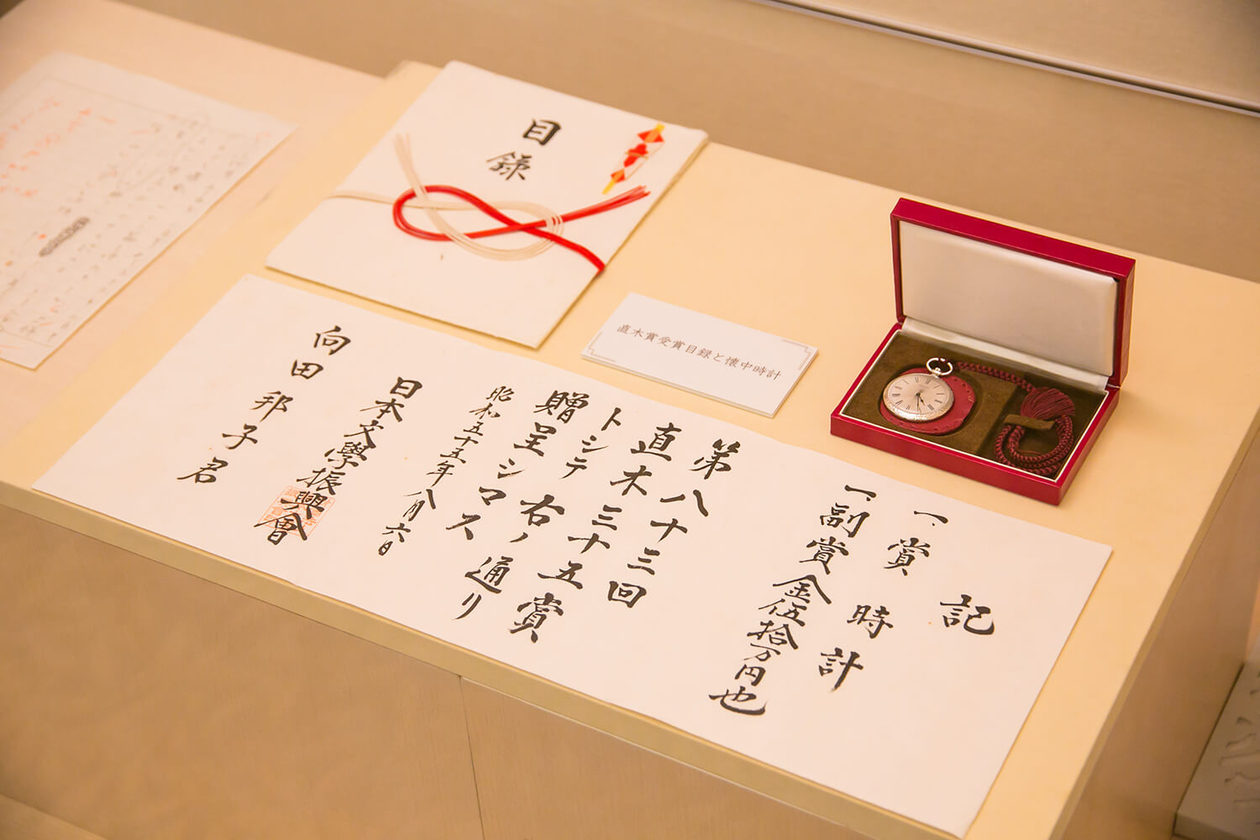 目録
直木賞受賞目録と懐中時計
記
一、賞 時計
一、副賞金伍拾万円也
第八十三回
直木三十五賞
トシテ右ノ通リ
贈呈シマス
昭和五十五年八月六日
日本文學振興會
向田邦子君